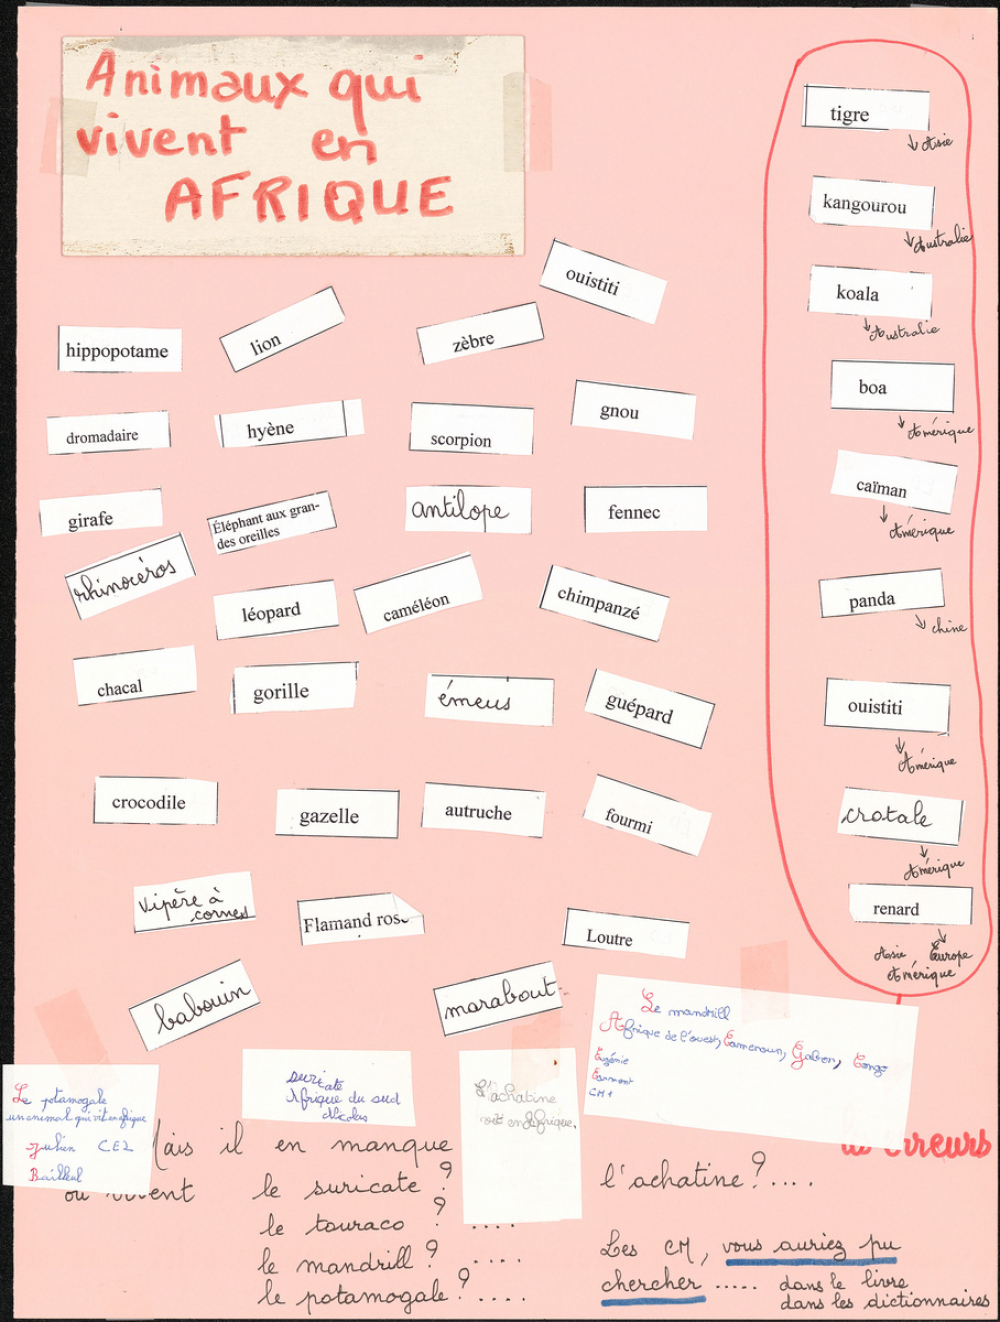 Animaux qui
vivent en
AFRIQUE
ouistiti
hippopotame
lion
zèbre
dromadaire
hyène
scorpion
gnou
girafe
Éléphant aux gran-
des oreilles
antilope
fennec
rhinocéros
léopard
caméléon
chimpanzé
chacal
gorille
émeus
guépard
crocodile
gazelle
autruche
fourmi
Vipère à
cornes
Flamand rose
Loutre
babouin
marabout
tigre
↓ Asie
kangourou
↓ Australie
koala
↓ Australie
boa
↓ Amérique
caïman
↓ Amérique
panda
↓ chine
ouistiti
↓ Amérique
crotale
↓ Amérique
renard
↓
Asie Europe
Amérique
Le mandrill
Afrique de l'ouest, Cameroun, Gabon, Congo
Eugénie
CM1
Le potamogale
un animal qui vit en afrique
Julien CE2
Bailleul
suricate
Afrique du sud
Nicolas
L'achatine
vit en Afrique.
les erreurs
Mais il en manque
où vivent
le suricate ?
le touraco ? ....
le mandrill ? ....
le potamogale ? ....
l'achatine ? ....
Les CM, vous auriez pu
chercher ..... dans le livre
dans les dictionnaires